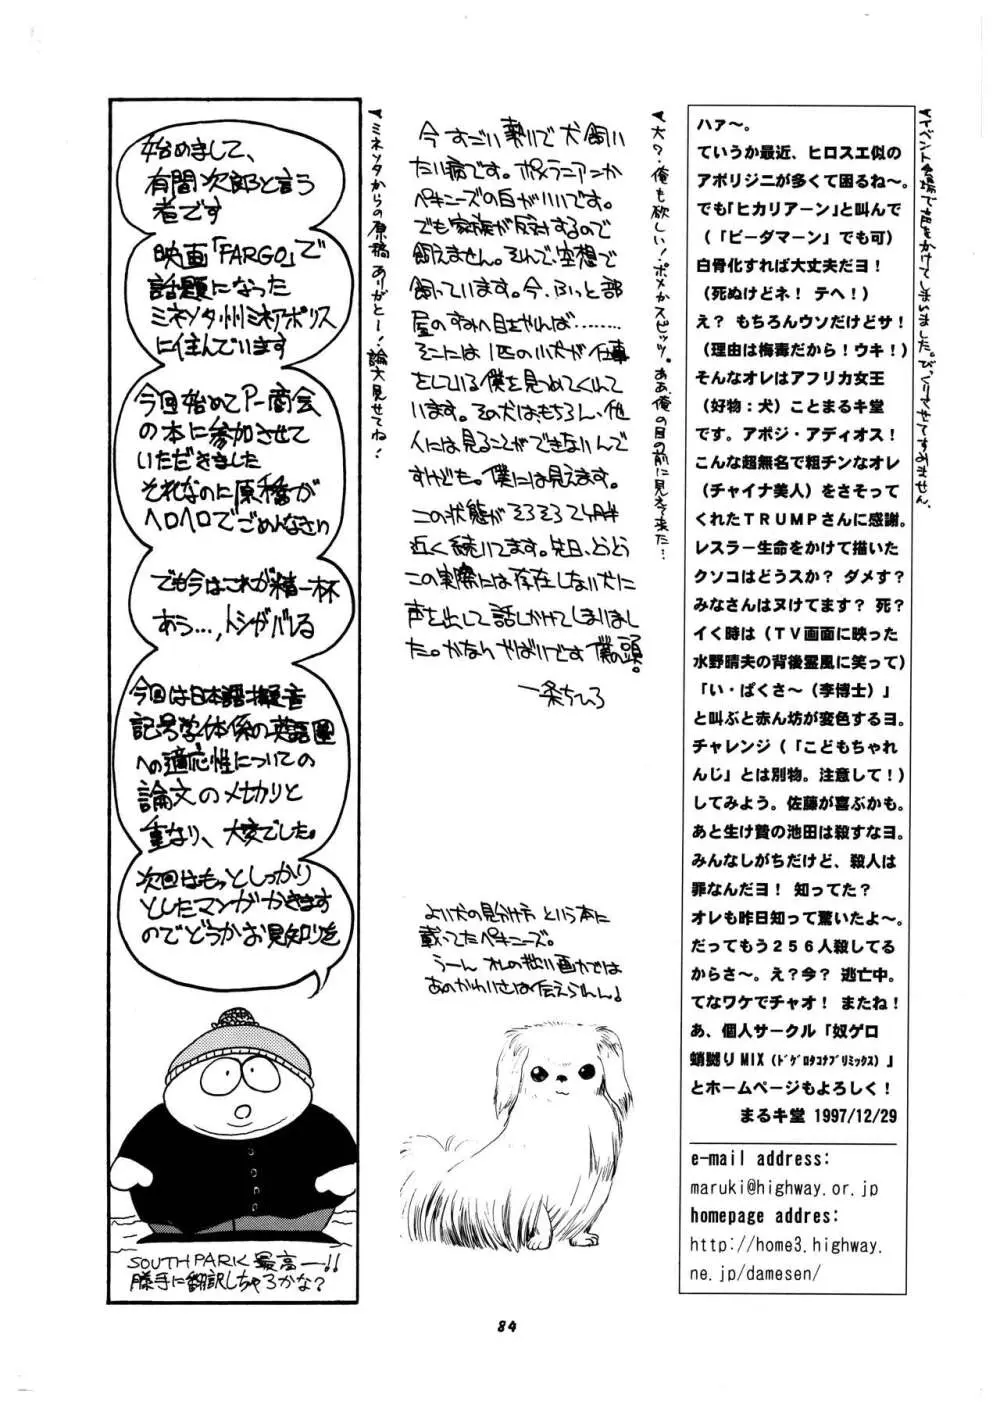 ▼イベント会場で声をかけてしまいました。びっくりさせてすみません。
ハァ〜。
ていうか最近、ヒロスエ似の
アボリジニが多くて困るね〜。
でも「ヒカリアーン」と叫んで
（「ビーダマーン」でも可）
白骨化すれば大丈夫だヨ！
（死ぬけどネ！ テヘ！）
え？ もちろんウソだけどサ！
（理由は梅毒だから！ウキ！）
そんなオレはアフリカ女王
（好物：犬）ことまるキ堂
です。アボジ・アディオス！
こんな超無名で粗チンなオレ
（チャイナ美人）をさそって
くれたＴＲＵＭＰさんに感謝。
レスラー生命をかけて描いた
クソコはどうスか？ ダメす？
みなさんはヌけてます？ 死？
イく時は（ＴＶ画面に映った
水野晴夫の背後霊風に笑って）
「い・ぱくさ〜（李博士）」
と叫ぶと赤ん坊が変色するヨ。
チャレンジ（「こどもちゃれ
んじ」とは別物。注意して！）
してみよう。佐藤が喜ぶかも。
あと生け贄の池田は殺すなヨ。
みんなしがちだけど、殺人は
罪なんだヨ！ 知ってた？
オレも昨日知って驚いたよ〜。
だってもう２５６人殺してる
からさ〜。え？今？ 逃亡中。
てなワケでチャオ！ またね！
あ、個人サークル「奴ゲロ
蛸嬲りMIX（ﾄﾞｹﾞﾛﾀｺﾅﾌﾞﾘﾐｯｸｽ）」
とホームページもよろしく！
まるキ堂 1997/12/29
e-mail address:
maruki@highway.or.jp
homepage addres:
http://home3.highway.
ne.jp/damesen/
▼犬？・俺も欲しい！ポメかスピッツ。ああ、俺の目の前に見えて来た…
今すごい勢いで犬飼い
たい病です。ポメラニアンか
ペキニーズの白がいいです。
でも家族が反対するので
飼えません。それで、空想で
飼っています。今、ふっと部
屋のすみへ目をやれば………
そこには1匹の小犬が仕事
をしている僕を見つめてくれて
います。その犬は、もちろん、他
人には見ることができないんで
すけども。僕には見えます。
この状態がそろそろ2ヶ月半
近く続いてます。先日、とうとう
この実際には存在しない犬に
声を出して話しかけてしまいまし
た。かなりやばいです僕の頭。
一条ちひろ
よい犬の見分け方という本に
載ってたペキニーズ。
うーん オレの拙い画力では
あのかわいさは伝えられん♩
▼ミネソタからの原稿ありがとー！論文見せてね！
始めまして、
有間次郎と言う
者です
映画「FARGO」で
話題になった
ミネソタ州ミネアポリス
に住んでいます
今回始めてアー商会
の本に参加させて
いただきました
それなのに原稿が
ヘロヘロでごめんなさい
でも今はこれが精一杯
あう…,トシがバレる
今回は日本語擬音
記号学体系の英語圏
への適応性についての
論文のメ切りと
重なり、大変でした。
次回はもっとしっかり
としたマンガかきます
のでどうかお見知りを
SOUTH PARK 最高ー!!
勝手に翻訳しちゃろかな？
84